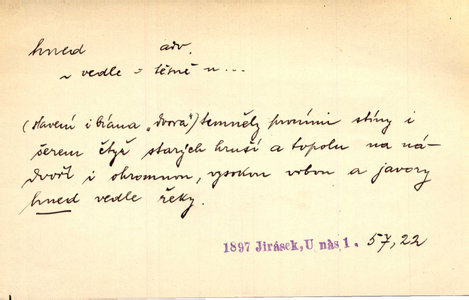 hned adv.
~ vedle = těsně u...
(stavení i brána „dvora") temněly prvními stíny i
šerem čtyř starých hruší a topolu na ná-
dvoří i ohromnou, vysokou vrbou a javory
hned vedle řeky.
1897 Jirásek, U nás 1. 57,22